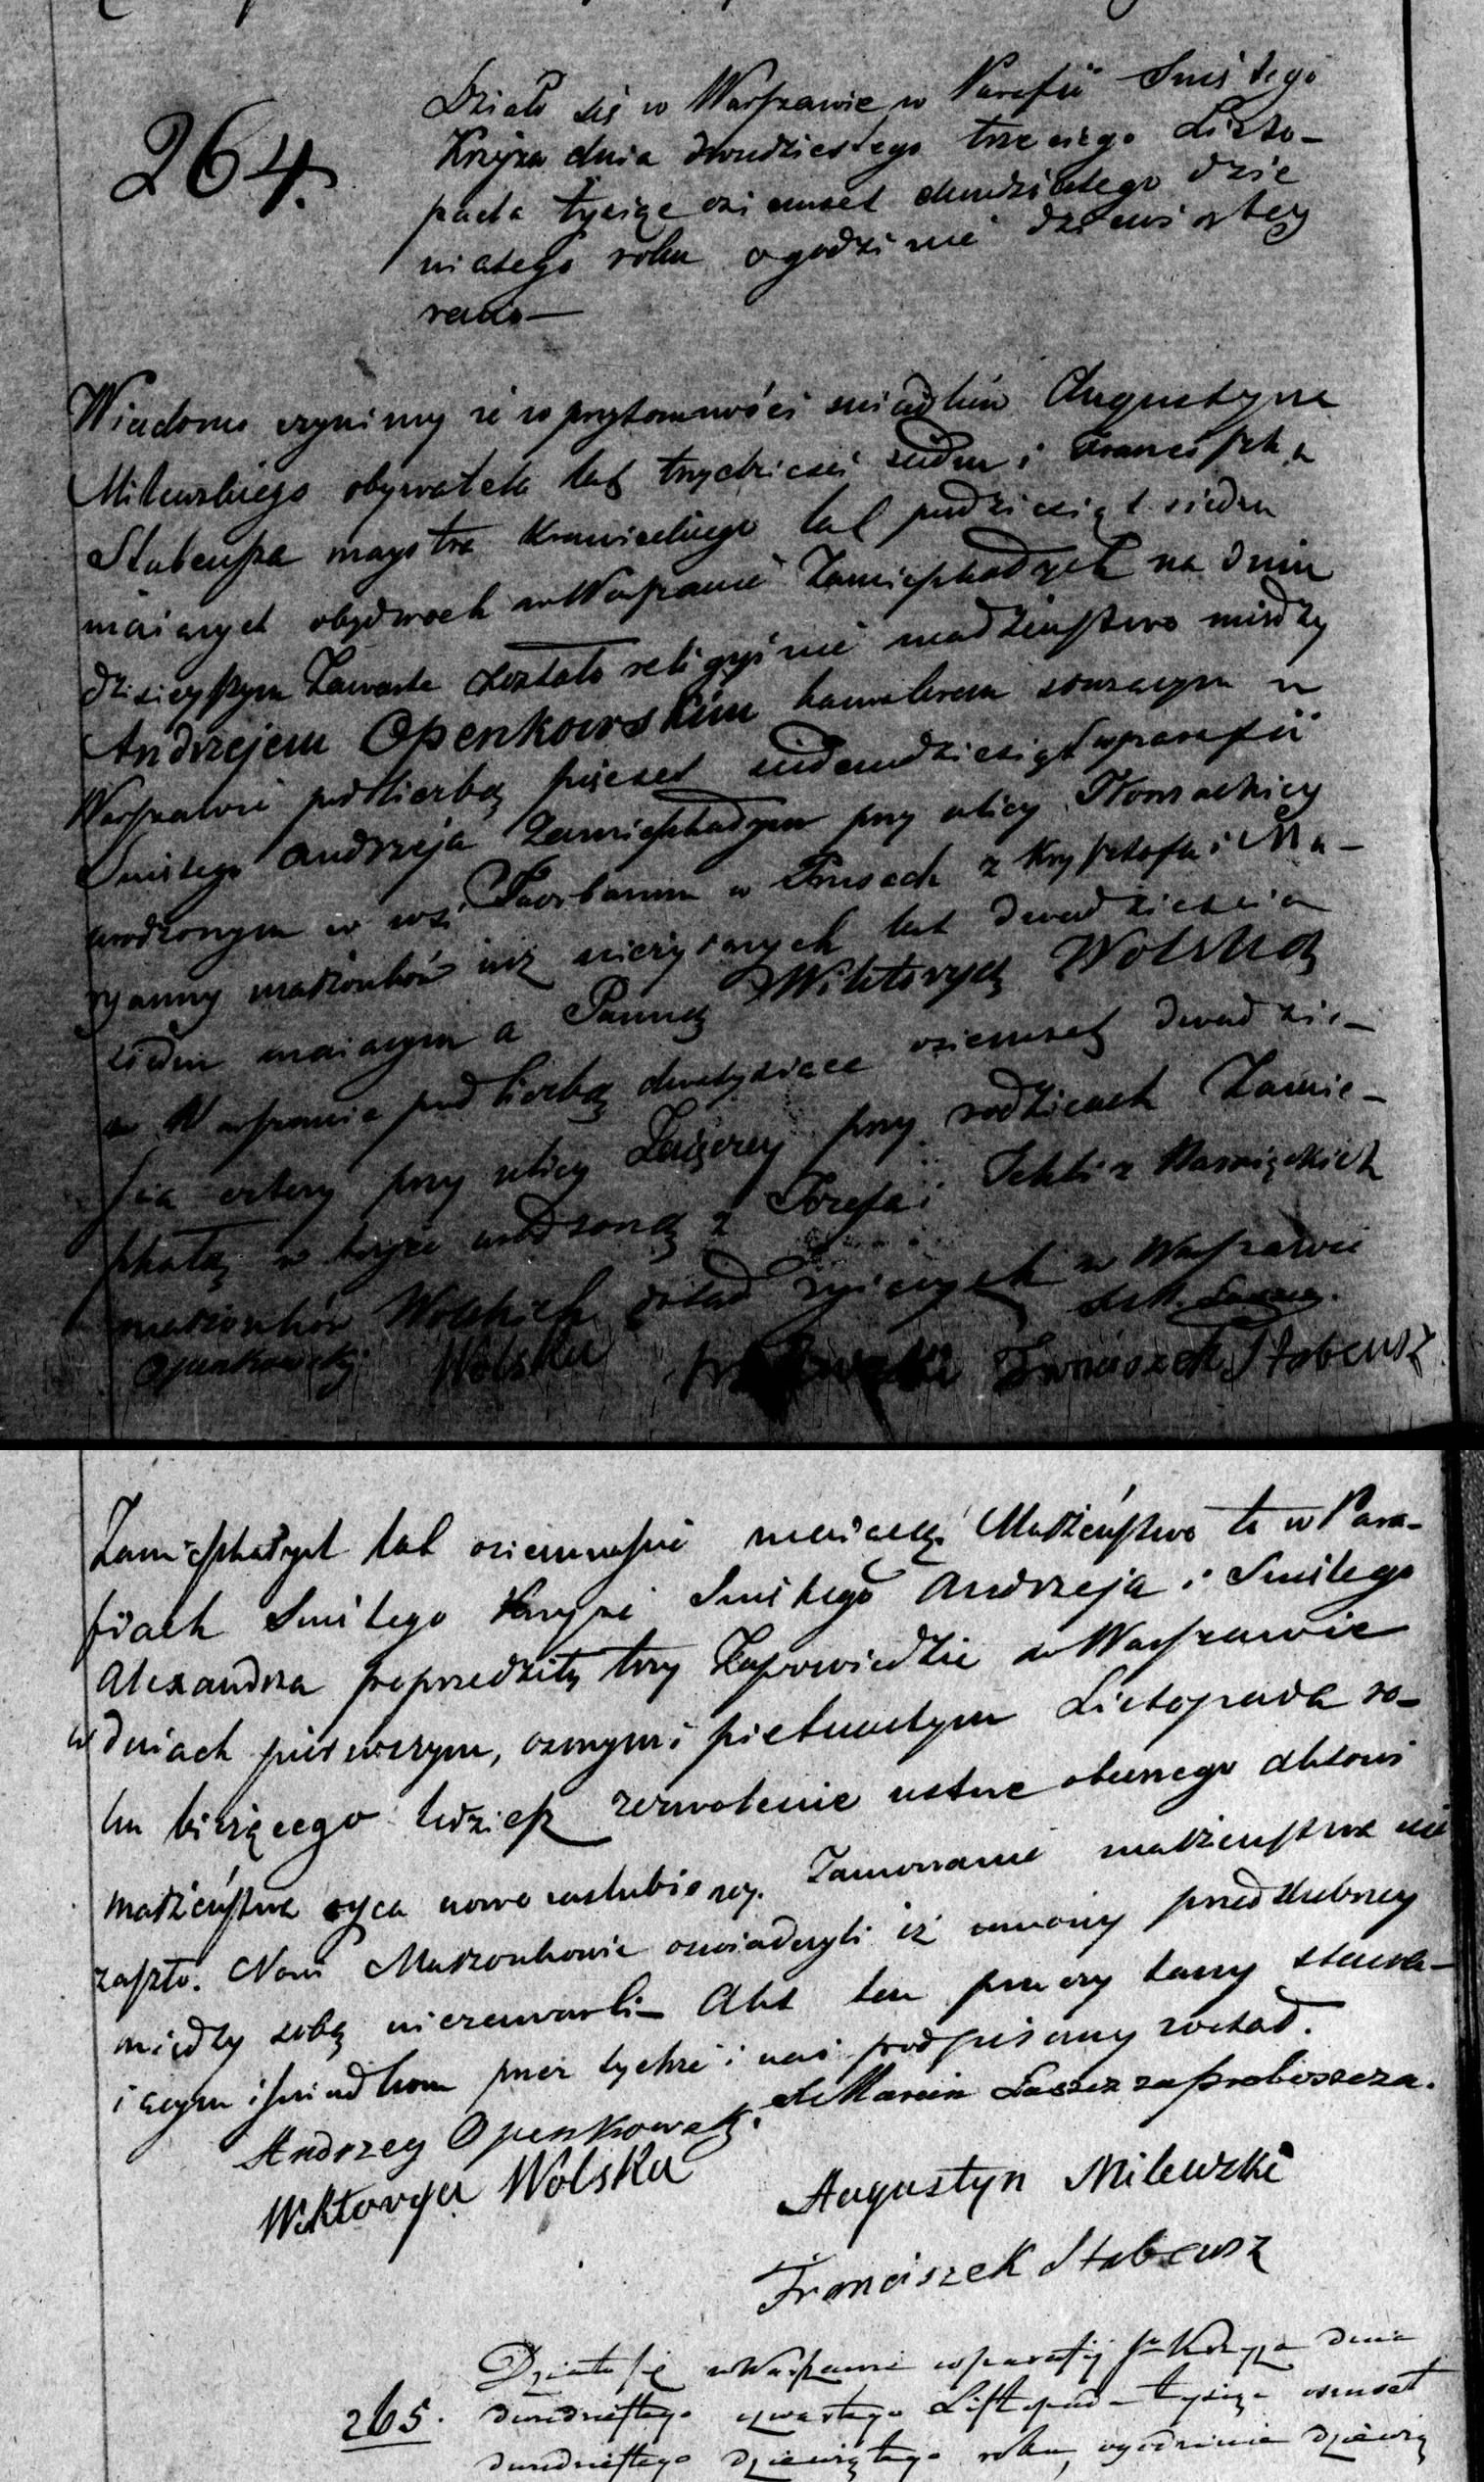 264.
Działo się w Warszawie w Parafii Swiętego
Krzyża dnia dwudziestego trzeciego Listo-
pada tysiąc osimset dwudziestego dzie
wiątego roku o godzinie dziewiątey
rano—
Wiadomo czynimy że w przytomności swiadków Augustyna
Milewskiego obywatela lat trzydzieści siedm i Franciszka
Stabeusza maystra Krawieckiego lat pięćdziesiąt siedm
maiących obydwoch w Warszawie Zamieszkałych na dniu
dzisieyszym Zawarte zostało religijnie małżeństwo między
Andrzejem Openkowskim kawalerem w
Warszawie pod liczbą pięćset siedmdziesiąt w parafii
Swiętego Andrzeja Zamieszkałym przy ulicy
urodzonym w wsi w Prusach z Krysztofa i Ma-
ryanny małżonków iuż nieżyiących lat dwadzieścia
siedm maiącym a Panną Wiktoryą Wolską
w Warszawie pod liczbą dwatysiące osiemset dwadzie-
ścia cztery przy ulicy przy rodzicach Zamie-
szkałą w teyże urodzoną z Józefa i Tekli z
małżonków Wolskich dotąd żyiących w Warszawie
Openkowsky Wolska Franciszek Stabeusz
Zamieszkałych lat osiemnaście maiącą. Małżeństwo to w Para-
fiach Swiętego Krzyża Swiętego Andrzeja i Swiętego
Alexandra poprzedziły trzy Zapowiedzie w Warszawie
w dniach pierwszym, osmym i pietnastym Listopada ro-
ku bieżącego tudzież zezwolenie ustne obecnego aktowi
małżeństwa oyca nowo zaslubioney. Tamowanie małżeństwa nie
zaszło. Nowi Małżonkowie oswiadczyli iż umowy przedslubney
między sobą niezawarli— Akt ten przeczytany stawa-
iącym i swiadkom przez tychże i nas podpisany został.
Marcin Laszcz za proboszcza.
Andrzey Openkowsky.
Wiktorya Wolska
Augustyn Milewski
Franciszek Stabeusz
265.
Działo się w Warszawie w parafij Sº Krzyża dnia
dwudziestego czwartego Listopada tysiąc osmset
dwudziestego dziewiątego roku, o godzinie dziewią